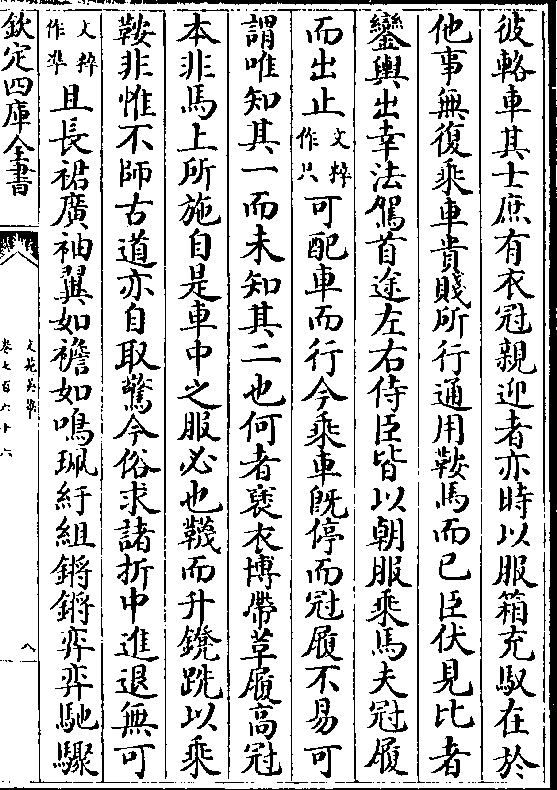 彼輅車其士庶有衣冠親迎者亦時以服箱充馭在於
他事無復乘車貴賤所行通用鞍馬而已臣伏見比者
鑾輿出幸法駕首途左右侍臣皆以朝服乘馬夫冠履
而出止文粹作只可配車而行今乘車既停而冠履不易可
謂唯知其一而未知其二也何者裒衣博帶革履高冠
本非馬上所施自是車中之服必也韈而升鐙跣以乘
鞍非惟不師古道亦自取驚今俗求諸折中進退無可
文粹作準且長裙廣袖翼如襜如鳴珮紆組鏘鏘弈弈馳驟
欽定四庫全書
文苑英華
卷七百六十六
八